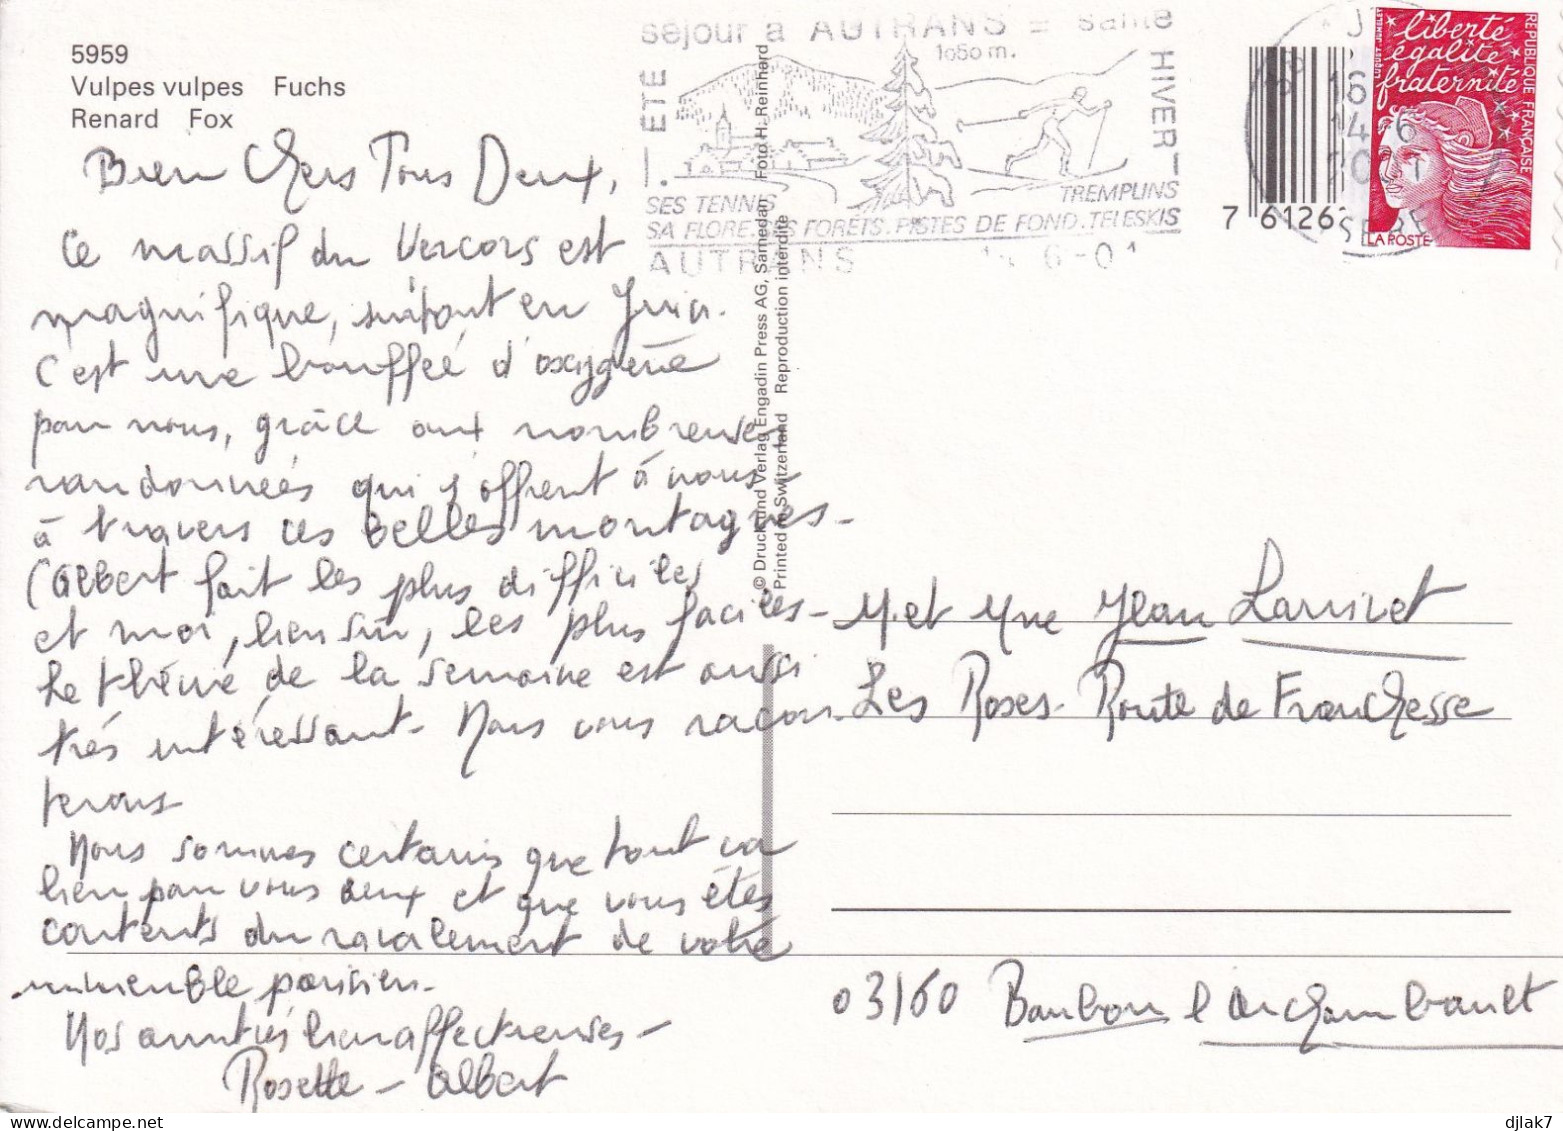 5959
Vulpes vulpes Fuchs
Renard Fox
Bien Chers Tous Deux,
Ce massif du Vercors est
magnifique, surtout en Juin.
C'est une bouffée d'oxygène
pour nous, grâce aux nombreuses
randonnées qui s'offrent à nous
à travers ces belles montagnes -
Albert fait les plus difficiles
et moi, bien sûr, les plus faciles -
Le thème de la semaine est aussi
très intéressant - Nous vous racon-
terons -
Nous sommes certains que tout va
bien pour vous deux et que vous êtes
contents du ravalement de votre
immeuble parisien -
Nos amitiés bien affectueuses -
Rosette - Albert
© Druck und Verlag Engadin Press AG, Samedan Foto H. Reinhard
Printed in Switzerland Reproduction interdite
séjour à AUTRANS = santé
1050 m.
ÉTÉ
HIVER
SES TENNIS
TREMPLINS
SA FLORE. SES FORÊTS. PISTES DE FOND. TÉLÉSKIS
AUTRANS 14-6-01
16
14-6
ISERE
7 61263
liberté
égalité
fraternité
RÉPUBLIQUE FRANÇAISE
LA POSTE
M. et Mme Jean Larrivet
Les Roses - Route de Franchesse
03160 Bourbon l'Archambault
djlak7 / delcampe.net